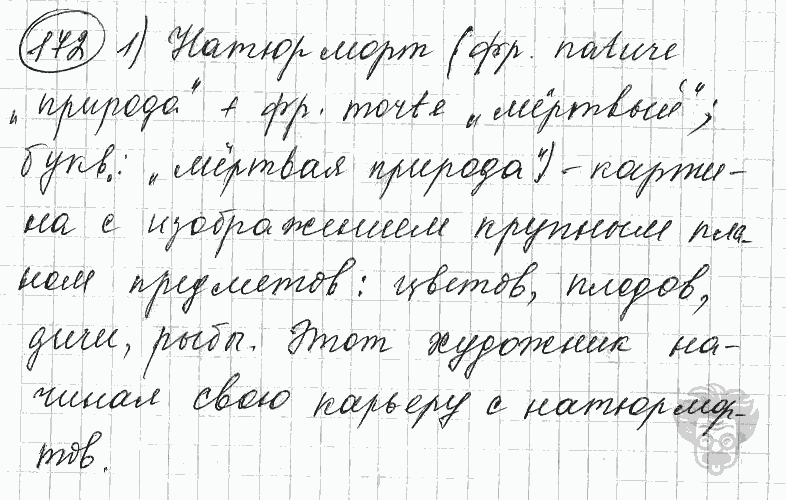 172 1) Натюрморт (фр. nature
„природа" + фр. morte „мёртвый";
букв.: „мёртвая природа") – карти-
на с изображением крупным пла-
ном предметов: цветов, плодов,
дичи, рыбы. Этот художник на-
чинал свою карьеру с натюрмор-
тов.